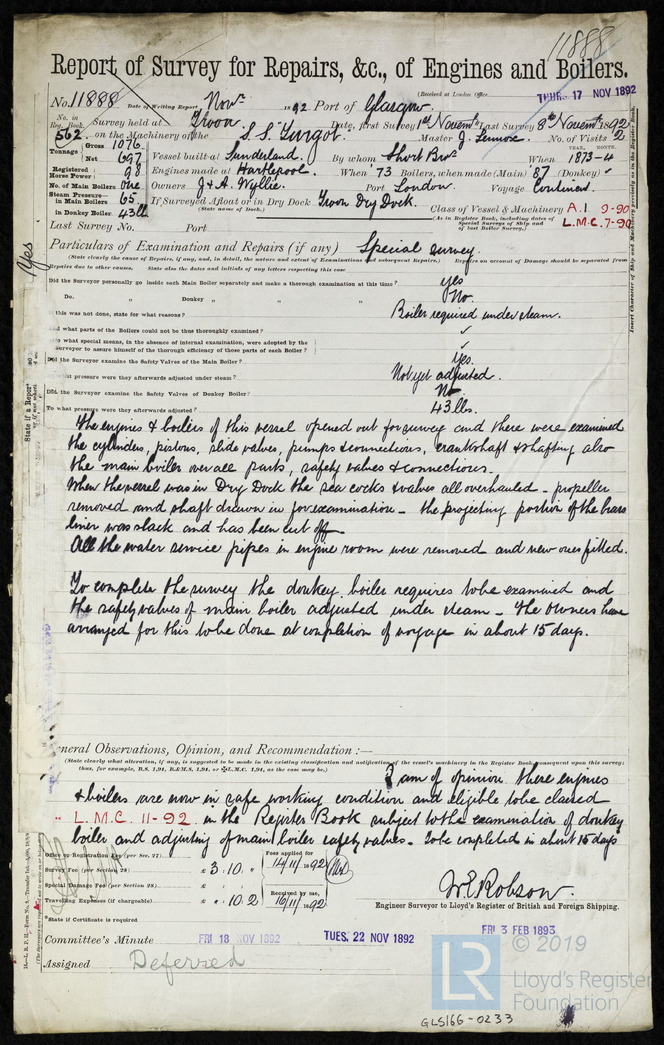 11888
Report of Survey for Repairs, &c., of Engines and Boilers.
(Received at London Office
THURS. 17 NOV 1892
No. 11888 Date of Writing Report Novr 1892 Port of Glasgow
No. in Reg. Book. Survey held at Troon Date, first Survey 1st Novemr Last Survey 8th Novemr 1892
562 on the Machinery of the S.S. "Turgot" Master J. No. of Visits 2
Tonnage Gross 1076 Net 697 Vessel built at Sunderland. By whom Short Bros When 1873-4
YEAR. MONTH.
Registered Horse Power 98 Engines made at Hartlepool. When 73 Boilers, when made (Main) 87 (Donkey) ✓
No. of Main Boilers One Owners J & A. Wyllie. Port London. Voyage Continent
Steam Pressure in Main Boilers 65 If Surveyed Afloat or in Dry Dock Troon Dry Dock.
(State name of Dock.)
in Donkey Boiler 43 lb Class of Vessel & Machinery A.1 9-90
(As in Register Book, including dates of Special Surveys of Ship and of last Boiler Survey.) L.M.C. 7-90
Last Survey No. Port
Particulars of Examination and Repairs (if any) Special survey.
(State clearly the cause of Repairs, if any, and, in detail, the nature and extent of Examinations and subsequent Repairs.) Reports on account of Damage should be separated from
Repairs due to other causes. State also the dates and initials of any letters respecting this case
Did the Surveyor personally go inside each Main Boiler separately and make a thorough examination at this time? Yes
Do. „ Donkey „ „ „ No.
this was not done, state for what reasons? Boiler required under steam.
what parts of the Boilers could not be thus thoroughly examined? ✓
what special means, in the absence of internal examination, were adopted by the
Surveyor to assure himself of the thorough efficiency of those parts of each Boiler? ✓
Did the Surveyor examine the Safety Valves of the Main Boiler? Yes.
pressure were they afterwards adjusted under steam? Not yet adjusted.
Did the Surveyor examine the Safety Valves of Donkey Boiler? No
To what pressure were they afterwards adjusted? 43 lbs.
The engines & boilers of this vessel opened out for survey and there were examined
the cylinders, pistons, slide valves, pumps & connections, crankshaft & shafting also
the main boiler over all parts, safety valves & connections.
When the vessel was in Dry Dock the sea cocks & valves all overhauled - propeller
removed and shaft drawn in for examination - the projecting portion of the brass
liner was slack and has been cut off
All the water service pipes in engine room were removed and new ones fitted.
To complete the survey the donkey boiler requires to be examined and
the safety valves of main boiler adjusted under steam - The owners have
arranged for this to be done at completion of voyage in about 15 days.
General Observations, Opinion, and Recommendation:—
(State clearly what alteration, if any, is suggested to be made in the existing classification and notification of the vessel's machinery in the Register Book consequent upon this survey;
thus, for example, B.S. 1,91, B.&M.S. 1,91, or ✠L.M.C. 1,91, as the case may be.)
I am of opinion these engines
& boilers are now in safe working condition and eligible to be classed
" L.M.C. 11-92 in the Register Book subject to the examination of donkey
boiler and adjusting of main boiler safety valves - To be completed in about 15 days
Office or Registration Fee (per Sec. 27)
Survey Fee (per Section 28) £ 3. 10. "
Special Damage Fee (per Section 28) £
Travelling Expenses (if chargeable) £ " 10. 2
Fees applied for 14/11/1892
Received by me, 16/11/1892
W E Robson
Engineer Surveyor to Lloyd's Register of British and Foreign Shipping.
State if Certificate is required
Committee's Minute FRI 18 NOV 1892 TUES. 22 NOV 1892 FRI 3 FEB 1893
Assigned Deferred
LR © 2019
Lloyd's Register
Foundation
GLS166-0233
Yes
State if a Report
Insert Character of Ship and Machinery precisely as in the Register Book.